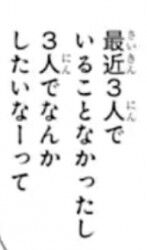 最近３人で
いることなかったし
３人でなんか
したいなーって